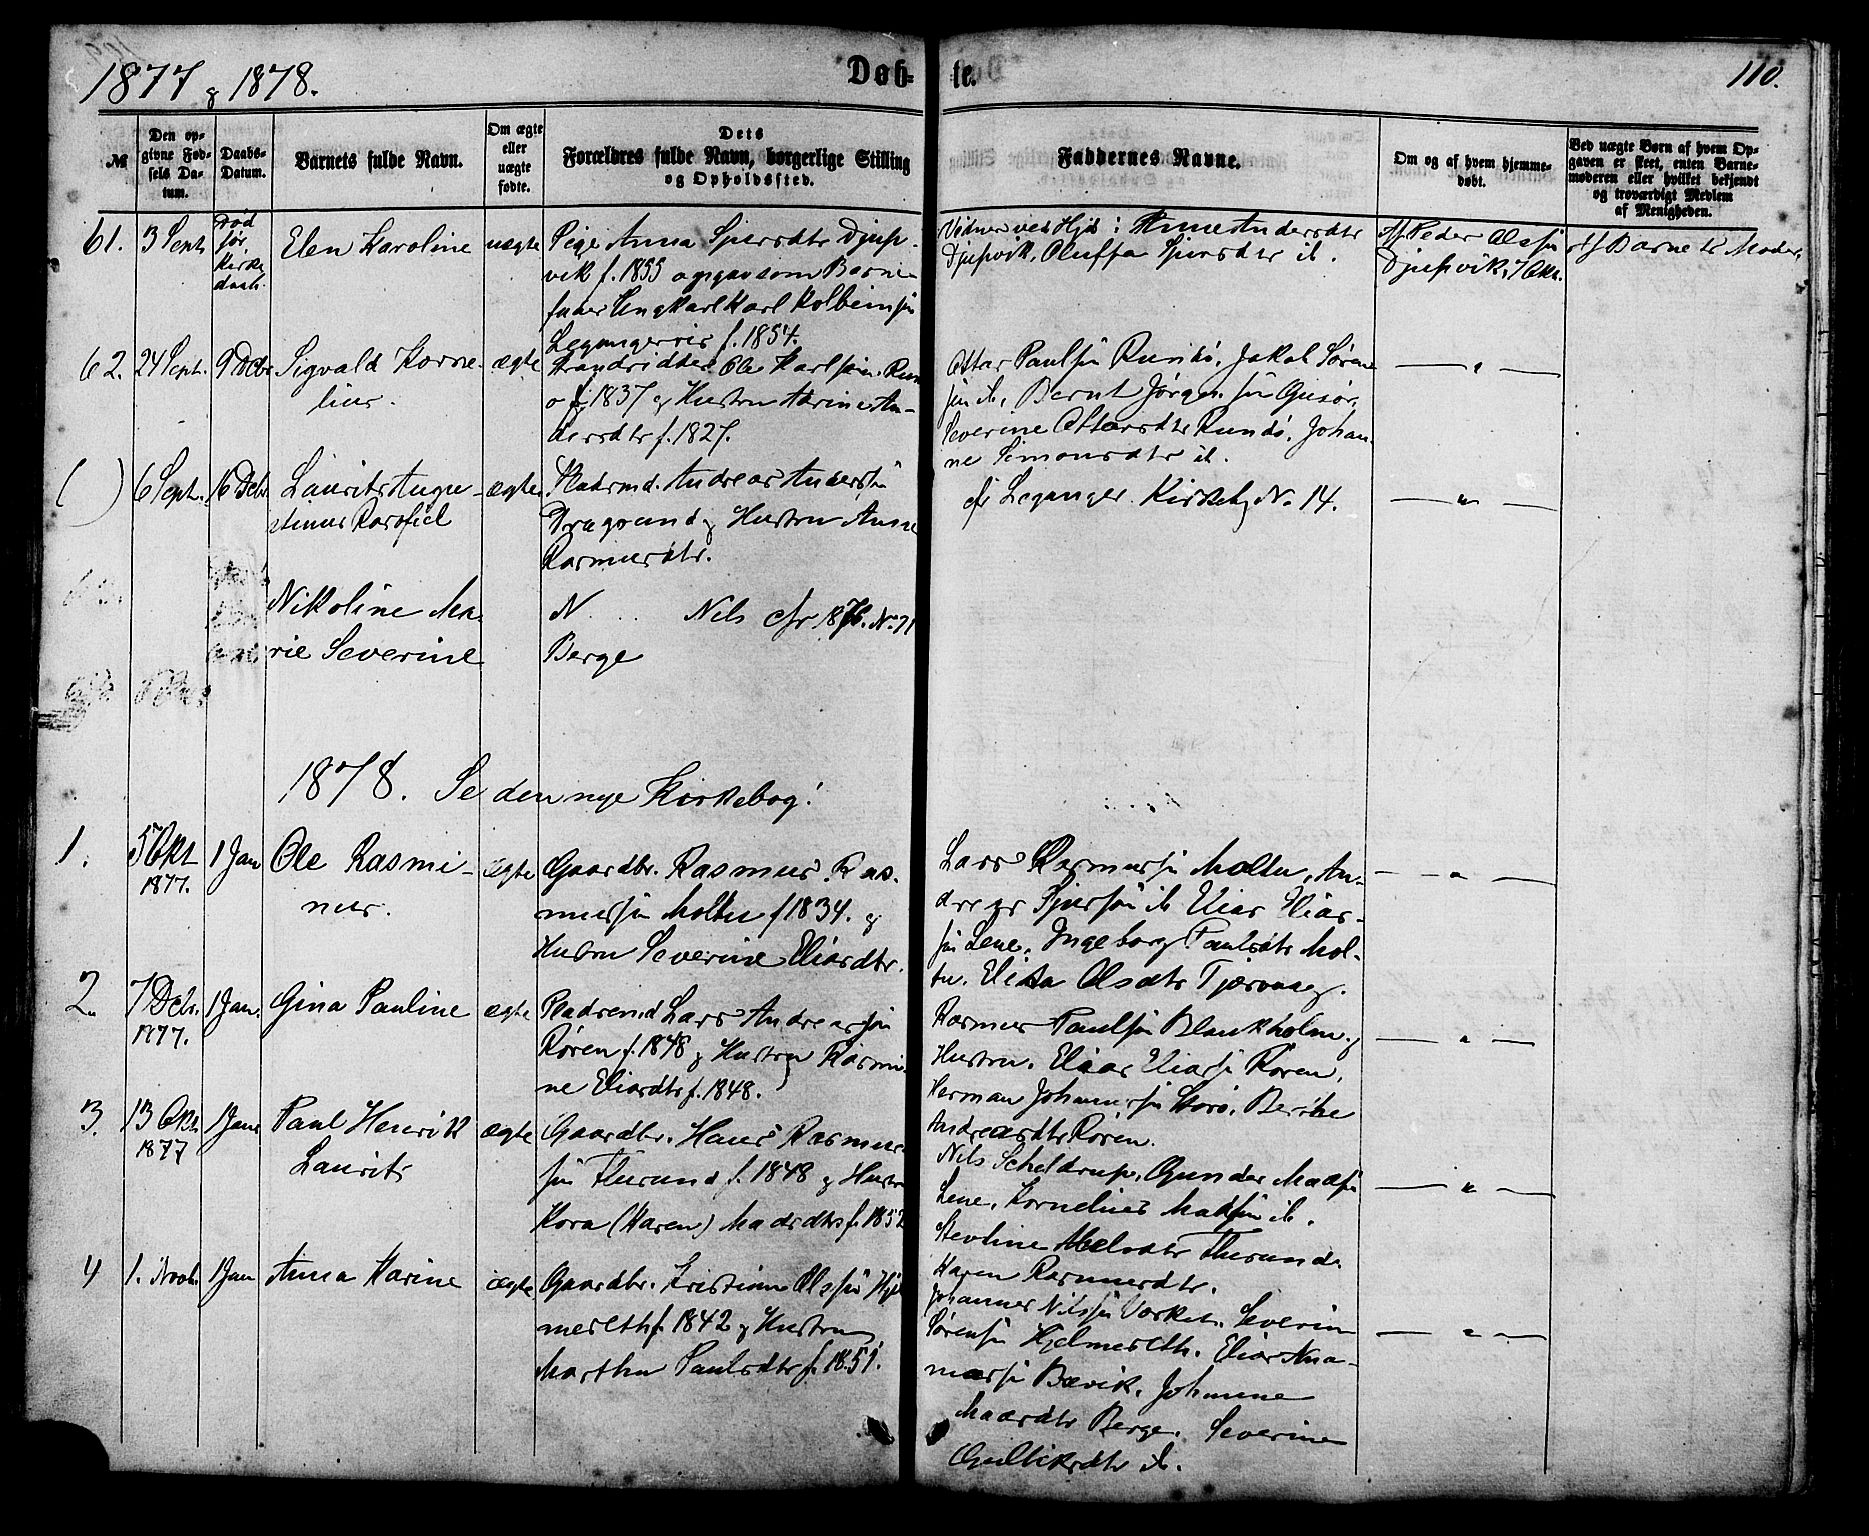 1877 og 1878.
Døb-
te.
110.
№
Den op-
givne Fød-
sels Da-
tum.
Daabs-
Datum.
Barnets fulde Navn.
Om ægte
eller
uægte
fødte.
Dets
Forældres fulde Navn, borgerlige Stilling
og Opholdssted.
Faddernes Navne.
Om og af hvem hjemme-
døbt.
Ved uægte Børn af hvem Op-
gaven er skeet, enten Barne-
moderen eller hvilket bekjendt
og troværdigt Medlem
af Menigheden.
61.
3 Sept.
Død
før
Kirke
daab.
Elen Karoline
uægte
Pige Anna Sjursdtr Djup-
vik f. 1855 opgav som Barne-
fader Ungkarl Karl Kolbeinsøn
Leganger f. 1854.
Vidner ved Hjd: Anne Andersdtr
Djupvik, Oluffa Sjursdtr ib.
Af Peder Olsøn
Djupvik, 7 Okt.
Af Barnets Moder.
62.
24 Sept.
9 Dcbr
Sigvald Korne-
lius.
ægte
Strandsidder Ole Karlsøn Run-
ø f. 1837 og Hustru Marine An-
dersdtr f. 1827.
Ottar Paulsøn Rundø, Jakob Søren-
søn ib, Bernt Jørgensøn Gusør,
Severine Ottarsdtr Rundø, Johan-
ne Simonsdtr ib.
— " —
( )
6 Sept.
16 Dcbr.
Laurits Augu-
stinus
ægte
Pladsmd. Andreas Andersøn
Dragsund og Hustru Anne
Rasmusdtr.
cfr Leganger Kirkebg No. 14.
— " —
Nikoline Ma-
rie Severine
N . . . Nils cfr 1876. No. 71
Berge
1878. Se den nye Kirkebog!
1.
5 Okt
1877.
1 Jan
Ole Rasmi-
nus.
ægte
Gaardbr. Rasmus Ras-
mussøn Moltu f 1834. og
Hustru Severine Eliasdtr.
Lars Rasmussøn Moltu, An-
dreas Sjursøn ib Elias Elias-
søn Lene, Ingeborg Paulsdtr Mol-
tu. Elisa Olsdtr Tjørvaag.
— " —
2.
7 Dcbr.
1877.
1 Jan.
Gina Pauline
ægte
Pladsmd Lars Andreassøn
Røren f. 1848 og Hustru Rasmi-
ne Eliasdtr f. 1848.
Rasmus Paulsøn Blankholm og
Hustru. Elias Eliassøn Røren,
Herman Johannessøn Storø, Berthe
Andreasdtr Røren.
— " —
3.
13 Okt.
1877
1 Jan
Paul Henrik
Laurits
ægte
Gaardbr. Hans Rasmus-
søn Flusund f. 1848 og Hustru
Kora (Karen) Madsdtr f. 1852
Nils Scheldrup, Gunder Madsøn
Lene, Kornelius Madsøn ib.
Karen Rasmusdtr.
— " —
4
1. Novb.
1 Jan
Anna Karine
ægte
Gaardbr. Kristian Olsøn Hjel-
meseth f. 1842 og Hustru
Marthe Paulsdtr f. 1851.
Johannes Nilssøn Vorkei. Severin
Sørensøn Hjelmeseth. Elias
Bævik, Johanne
Madsdtr Berge. Severine
Gullikdtr ib.
— " —